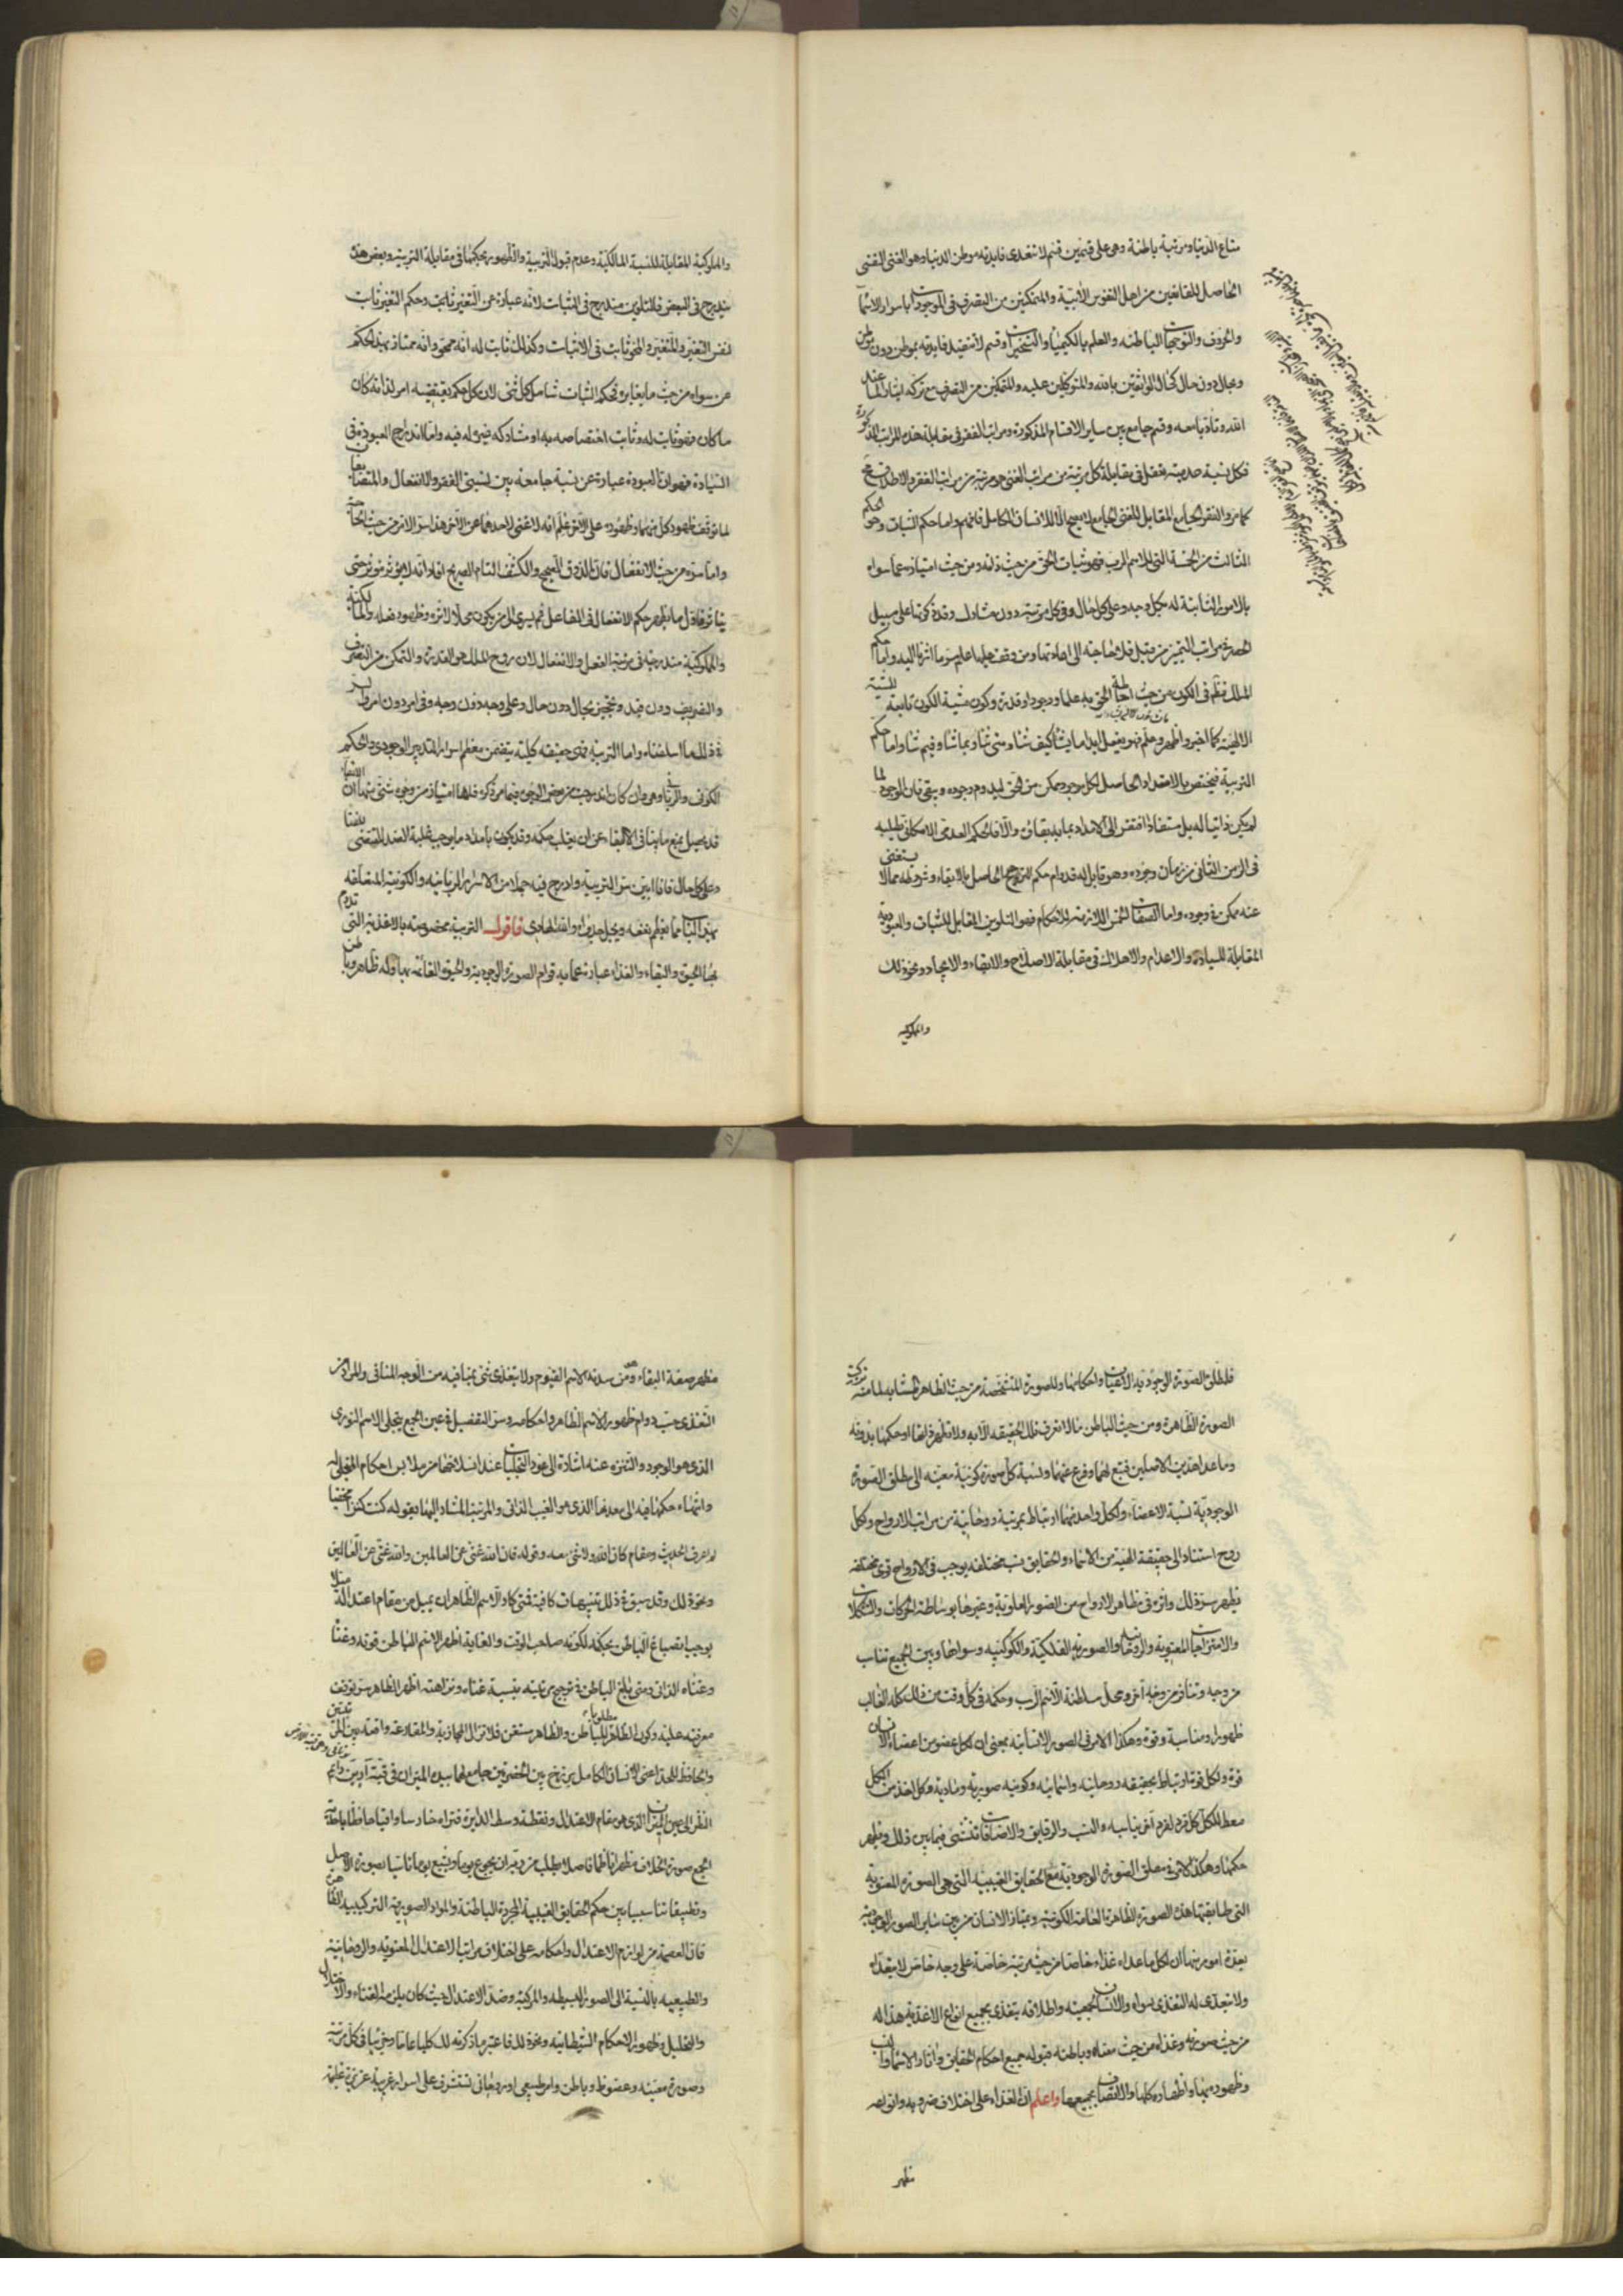 متاع الدنيا ومرتبة باطنة وهى على قسمين قسم لا تتعدى فايدته موطن الدنيا وهو الغنى النفسى
الحاصل للقانعين من اهل النفوس الابية والمتمكنين من التصرف فى الموجودات باسرار الاسما
والحروف والتوجهات الباطنه والعلم بالكيميا والتسخيرات وقسم لا تتقيد فايدته بموطن دون موطن
وبحال دون حال كحال الواثقين بالله والمتوكلين عليه والمتمكنين من التصرف مع تركه ايثارا لما عند
الله وتادبا معه وقسم جامع بين ساير الاقسام المذكورة ومراتب الفقر فى مقابلة هذه المراتب المذكورة
فكل نسبة عدمية تعقل فى مقابلة كل مرتبة من مراتب الغنى هو مرتبة من مراتب الفقر والاطلاق
كما مر والفقر الجامع المقابل للغنى الجامع لا يصح الا للانسان الكامل فافهم واما حكم الثبات وهو الحكم
الثالث من الخمسة التى للاسم الرب فهو ثبات الحق من حيث ذاته ومن حيث امتيازه عما سواه
بالامور الثابتة له بكل وجه وعلى كل حال وفى كل مرتبة دون مشارك وقد ذكرتها على سبيل
الحصر فى مراتب التمييز من قبل فلا حاجة الى اعادتها ومن وقف عليها علم سر ما اشرنا اليه واما حكم
الملك فظهر فى الكون من حيث احاطة الحق به علما ووجودا وقدرة وكون مشية الكون تابعة للمشية
الالهية كما اخبر واظهر وعلم فهو يفعل ابدا ما يشا كيف شا ومتى شا وبما شا وفيم شا واما حكم
التربية فيختص بالامداد الحاصل لكل موجود ممكن من الحق ليدوم وجوده ويبقى فان الوجود لما
لم يكن ذاتيا له بل مستفادا افتقر الى الامداد بما به بقاؤه والا فالحكم العدمى الامكانى يطلبه
فى الزمن الثانى من زمان وجوده وهو قابل له فدوام حكم الترجيح الحاصل بالابقاء وشروطه مما لا يستغنى
عنه ممكن فى وجوده واما الصفات الخمس اللازمة للاحكام فهو التلوين المقابل للثبات والعبودية
المقابلة للسيادة والاعدام والاهلاك فى مقابلة الاصلاح والابقاء والايجاد ونحو ذلك
والملوكيه
والملوكية المقابلة للنسبة المالكية وعدم قبول التربية والظهور بحكمها فى مقابلة التربية وبعض هذه
يندرج فى البعض فالتلوين مندرج فى الثبات لانه عبارة عن التغير ثابت وحكم التغير ثابت
لنفس التغير والمتغير والمحو ثابت فى الاثبات وكذلك ثابت له انه محو وانه ممتاز بهذا الحكم
عن سواه من حيث ما يغايره فحكم الثبات شامل كل شى لان كل حكم يقتضيه امر لذاته كان
ما كان فهو ثابت له وثابت اختصاصه به او مشاركه غيره له فيه واما اندراج العبودة فى
السيادة فهو ان العبودة عبارة عن نسبة جامعة بين نسبتى الفقر والانفعال والمتضايفان
لما توقف ظهور كل منهما وظهوره على الاخر علم انه لا غنى لاحدهما عن الاخر هذا سر الامر من حيث الحاجة
واما سره من حيث الانفعال فان الذوق الصحيح والكشف التام الصريح افاد انه لا يؤثر مؤثر حتى
يتاثر فاول ما يظهر حكم الانفعال فى الفاعل ثم يسرى الى من يكون محلا لاثره وظهور فعله والمالكية
والمملوكية مندرجة فى مرتبة الفعل والانفعال لان روح الملك هو القدرة والتمكن من التصرف
والتصريف دون قيد وتحجير بحال دون حال وعلى وجه دون وجه وفى امر دون امر وليس
ذلك ما اسلفناه واما التربية فهى حقيقة كلية يتضمن معظم اسرار التدبير الوجودى والحكم
الكونى والربانى وهى وان كان اندرجت من بعض الوجوه فيما مر ذكره فلها امتياز من وجوه شتى منها ان الاعتنا
قد يحصل بمنع ما ينافى الابقاء عن ان يغلب حكمه وقد يكون بامداد ما يوجب غلبة الضد المقتضى للفنا
وعلى كل حال فانا ابين سر التربية وادرج فيه جملا من الاسرار الربانيه والكونية المتعلقه
بهذا الباب مما يعظم نفعه ويجل جدواه والله الهادى فاقول التربية مخصوصة بالاغذية التى تدوم
بها الحيوة والبقاء والغذاء عبارة عما به قوام الصورة الوجودية والحيوة القائمة بها وله ظاهر وباطن
فلمطلق الصورة الوجودية الاعيان واحكامها وللصورة المتشخصة من حيث الظاهر المشابه لما منه تركبت
الصورة الظاهرة ومن حيث الباطن ما لا تعرف تلك الحقيقه الا به ولا تظهر ذاتها او حكمها بدونه
وما عدا هذين الاصلين فتبع لهما وفرع عنهما ونسبة كل صورة كونية معينه الى مطلق الصورة
الوجودية نسبة الاعضاء ولكل واحد منهما ارتباط بمرتبة روحانية من مراتب الارواح ولكل
روح استناد الى حقيقة الهية من الاسماء والحقايق بنسب مختلفه يوجب فى الارواح قوى مختلفه
يظهر سر ذلك واثره فى ظاهر الارواح من الصور العلوية وغيرها بوساطة الحركات والتشكلات
والامتزاجات المعنوية والروحانية والصورية الفلكية والكوكبيه وسواها وبين الجميع تناسب
من وجه وتنافر من وجه اخر ومحل سلطنة الاسم الرب وحكمه فى كل وقت من ذلك كله الغالب
ظهورا ومناسبة وقوة وهكذا الامر فى الصور الانسانية بمعنى ان لكل عضو من اعضاء الانسان
قوة ولكل قوة ارتباط بحقيقه روحانيه واسمائيه وكونيه صوريه وماديه وكل اخذ من الكل
معط للكل كل فرد لفرد اخر يناسبه والنسب والرقايق والاضافات تنتشى فيما بين ذلك ويظهر
حكمها وهكذا الامر فى مطلق الصورة الوجودية مع الحقايق الغيبية التى هى الصورة المعنوية
التى طابقتها هذه الصورة الظاهرة العامة الكونية ويمتاز الانسان من بين ساير الصور الوجودية
بعدة امور منها ان لكل ما عداه غذاء خاصا من حيث مرتبة خاصة على وجه خاص لا يتعداه
ولا يتعدى له التغذى بسواه والانسان بجمعيته واطلاقه يتغذى بجميع انواع الاغذية هذا له
من حيث صورته وغذاه من حيث معناه وباطنه قبوله جميع احكام الحقايق واثار الاسما والنسب
وظهوره بها واظهاره كلها والاتصاف بجميعها واعلم ان الغذاء على اختلاف ضروبه وانواعه
مظهر
مظهر صفة البقاء وهو من سدنة الاسم القيوم ولا يتغذى شى بما ينافيه من الوجه المنافى والمراد من
التغذى حب دوام ظهور الاسم الظاهر واحكامه وسر التفصيل فى عين الجمع بتجلى الاسم النورى
الذى هو الوجود والتنزه عنه اشارة الى عود التجليات عند انسلاخها من ملابس احكام المتجلى له
وانتهاء حكمها فيه الى معدنها الذى هو الغيب الذاتى والمرتبة المشار اليها بقوله كنت كنزا مخفيا
لم اعرف الحديث ومقام كان الله ولا شى معه وقوله فان الله غنى عن العالمين والله غنى عن العالمين
ونحو ذلك وقد سبق فى ذلك تنبيهات كافية فمتى كاد الاسم الظاهر ان يميل عن مقام اعتداله ميلا
يوجب انصباغ الباطن بحكمه لكونه صاحب الوقت والغاية اظهر الاسم الباطن قوته وغناه
وغناه الذاتى ومتى بالغ الباطن فى ترجيح مرتبته بنسبة غناه ونزاهته اظهر الظاهر سر توقف
معرفته عليه وكون الظاهر مطلوبا للباطن والظاهر مستغن فلا تزال المجاذبة والمقارعة واقعة بين المرتبتين
والحافظ للحد اعنى الانسان الكامل برزخ بين الحضرتين جامع لهما بيده الميزان فى قبة ارين دائم
النظر الى عين الميزان الذى هو مقام الاعتدال ونقطة وسط الدايرة فتراه حارسا واقيا حافظا باطنه
الجمع صورة الخلاف مظهرا ناظما فاصلا يطلب من ربه ان يجوع يوما ويشبع يوما تاسيا بصورة الاصل
وتطبيقا تناسبيا بين حكم الحقايق الغيبية المجردة الباطنة والمواد الصورية التركيبية الظاهرة
فان العصمة من لوازم الاعتدال واحكامه على اختلاف مراتب الاعتدال المعنوية والروحانية
والطبيعيه بالنسبة الى الصور البسيطه والمركبة وضد الاعتدال حيث كان يلزمه الفناء والاختلال
والتحليل وظهور الاحكام الشيطانيه ونحو ذلك فاعتبر ما ذكرته لك كليا عاما وجزئيا فى كل مرتبة
وصورة معينه وعضو ظاهر وباطن وامر طبيعى او روحانى تستشرف على اسرار غريبة عزيزة عظيمة